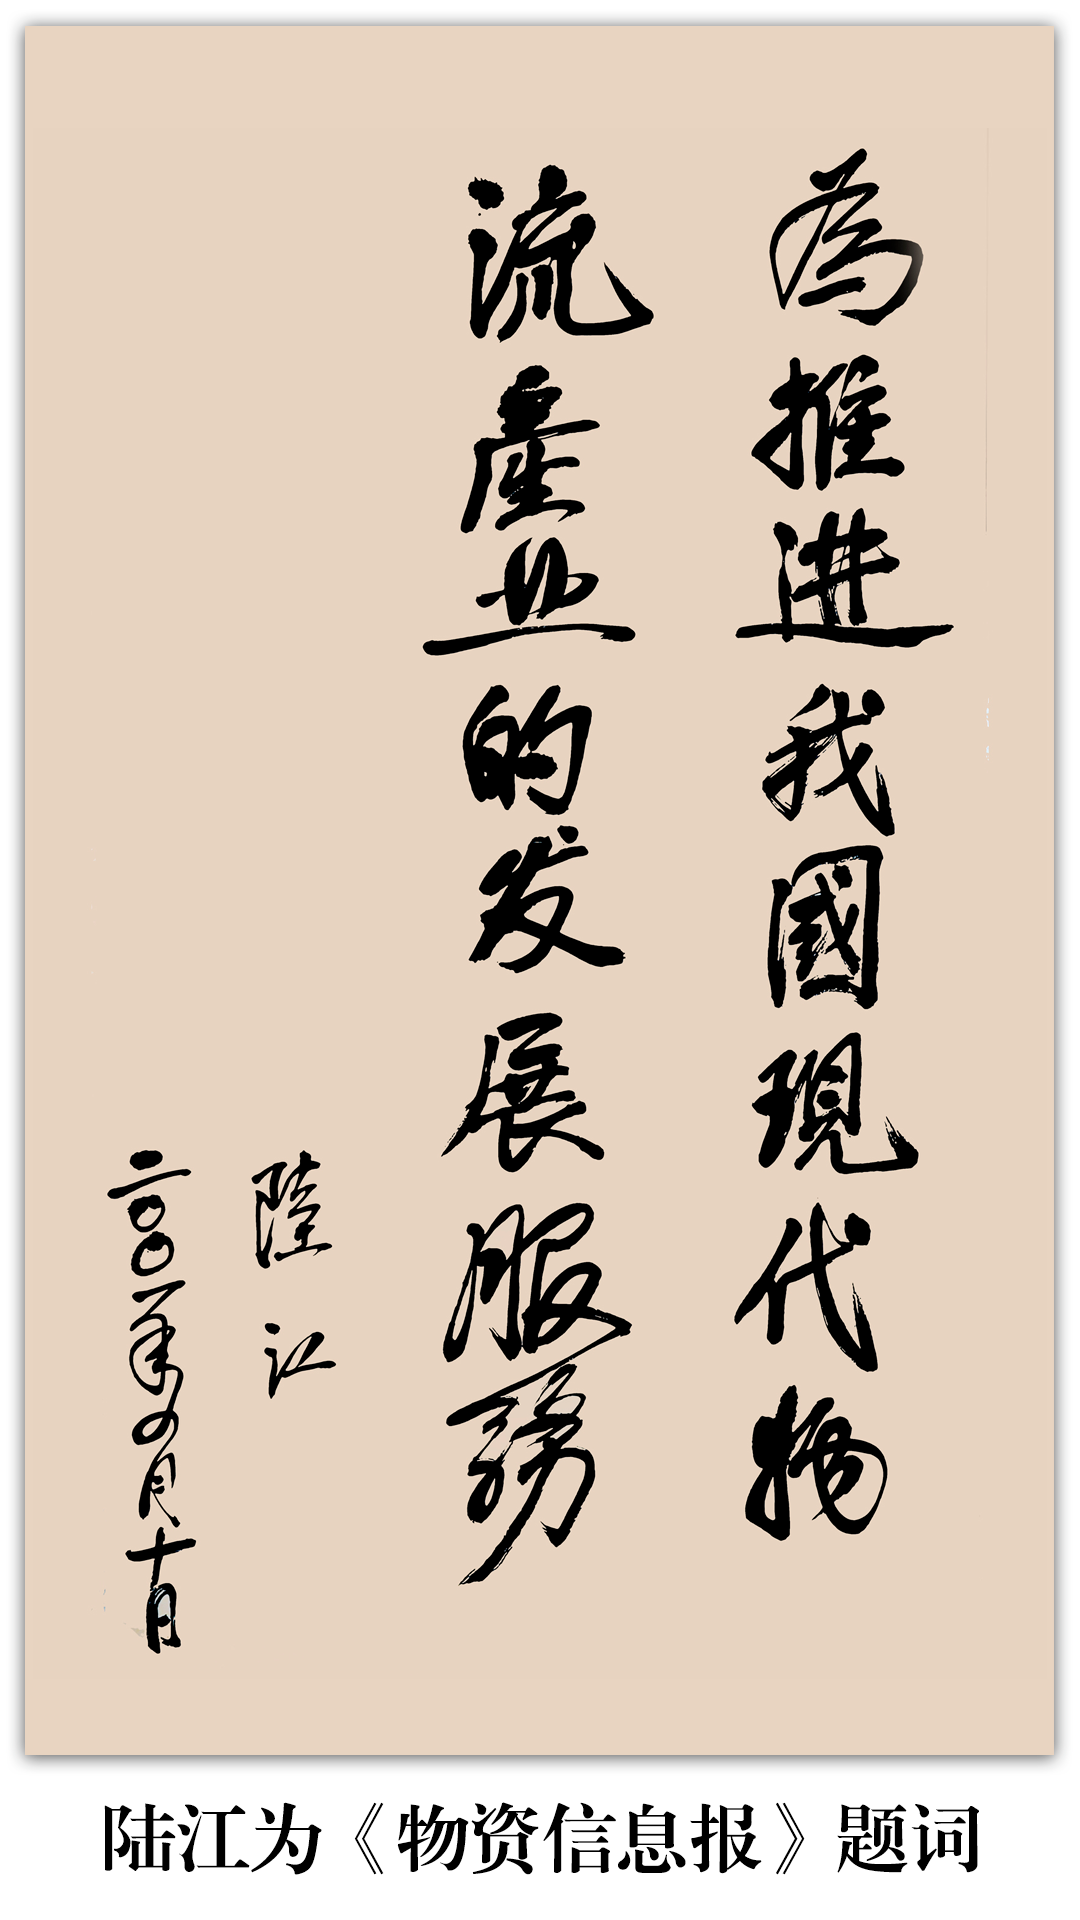 为推进我國現代物
流產业的发展服務
陸江
二〇〇一年四月十日
陆江为《物资信息报》题词